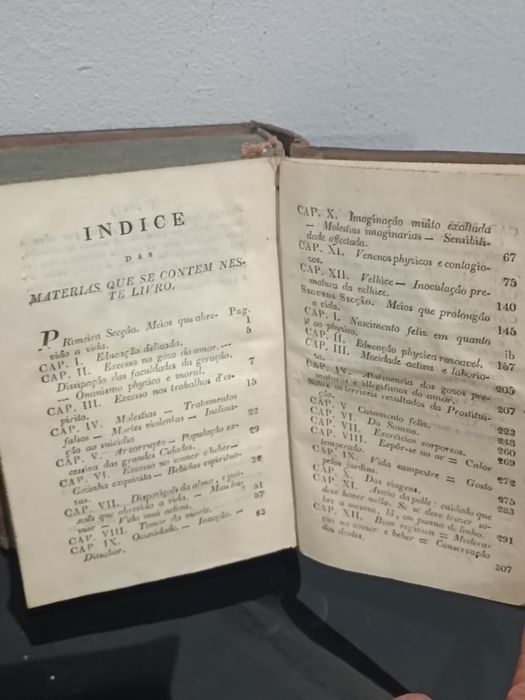 INDICE
DAS
MATERIAS QUE SE CONTEM NES-
TE LIVRO.
PRimeira Secção. Meios que abre- Pag.
vião a vida. 1
CAP. I. Educação delicada. 5
CAP. II. Excesso no gozo do amor. —
Dissipação das faculdades da geração.
— Onanismo physico e moral. 7
CAP. III. Excesso nos trabalhos d'es-
pirito. 15
CAP. IV. Molestias — Tratamentos
falsos — Mortes violentas — Inclina-
ção ao suicidio 22
CAP. V. Ar corrupto — População ex-
cessiva das grandes Cidades. 29
CAP. VI. Excesso no comer e beber —
Cozinha exquisita — Bebidas espirituo-
sas.
CAP. VII. Disposições da alma, e pai-
xoẽs que abrevião a vida. — Mau hu-
mor — Vida mui activa. 51
CAP. VIII. Temor da morte. 57
CAP. IX. Ociosidade. — Inacção. —
Dissabor. 63
CAP. X. Imaginação muito exaltada
— Molestias imaginarias — Sensibili-
dade affectada. 67
CAP. XI. Venenos physicos e contagio-
sos. 75
CAP. XII. Velhice — Inoculação pre-
matura da velhice. 140
SEGUNDA SECÇÃO. Meios que prolongão
a vida. 145
CAP. I. Nascimento feliz em quanto
ao physico. ib
CAP. II. Educação physica rasoavel. 157
CAP. III. Mocidade activa e laborio-
sa. 205
CAP. IV. Abstinencia dos gozos pre-
maturos e illegitimos do amor.
sobre os terriveis resultados da Prostitui-
ção. 207
CAP. V. Casamento feliz. 223
CAP. VI. Do Somno. 248
CAP. VII. Exercicios corporeos. 260
CAP. VIII. Expôr-se ao ar = Calor
temperado. 269
CAP. IX. Vida campestre = Gosto
pelos jardins. 275
CAP. X. Das viagens.
CAP. XI. Asseio da pelle: cuidado que
deve haver nella. Se se deve trazer so-
bre a mesma, lã, ou panno de linho. 291
CAP. XII. Bom regimen = Modera-
ção no comer e beber = Conservação
dos dentes. 307